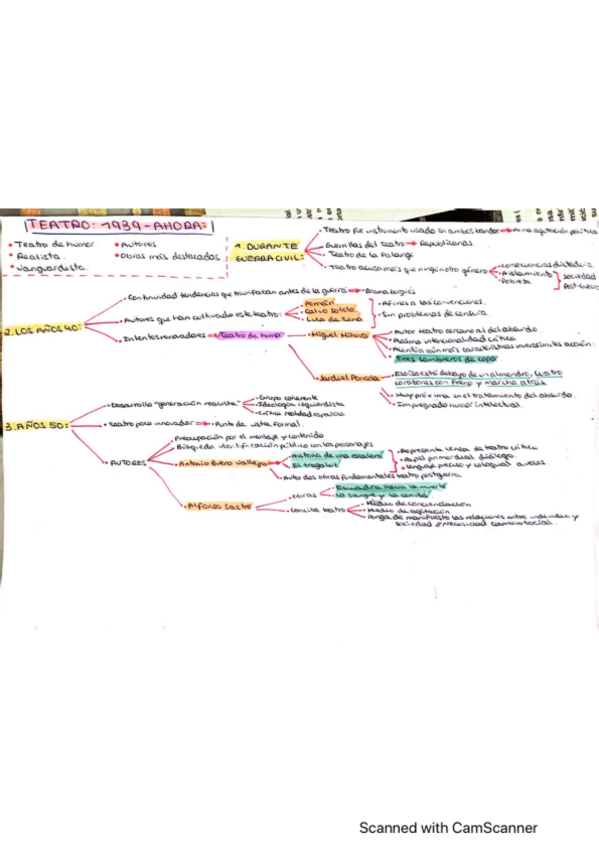 TEATRO: 1939 - AHORA:
• Teatro de humor
• Realista.
• Vanguardista.
• Autores
• Obras más destacadas
1. DURANTE GUERRA CIVIL:
• Teatro fue instrumento usado en ambos bandos → Arma agitación política
• Guerrillas del teatro → Republicanas.
• Teatro de la Falange
• Teatro acusó más que ningún otro género
• Consecuencias dictadura
• Aislamiento
• Pobreza
Sociedad
Post-Guerra
2. LOS AÑOS 40:
• Continuidad tendencias que triunfaban antes de la guerra → Drama burgués
• Autores que han cultivado este teatro:
• Pemán
• Calvo Sotelo.
• Luca de Tena
• Afines a las convenciones.
• Sin problemas de censura.
• Intentos renovadores → Teatro de humor
• Miguel Mihura
• Autor teatro cercano al del absurdo.
• Máxima intencionalidad crítica
• Acentúa aún más características inverosímiles acción:
• Tres sombreros de copa
• Jardiel Poncela
• Eloísa está debajo de un almendro, Cuatro
corazones con freno y marcha atrás.
• Muy próxima en el tratamiento del absurdo.
• Impregnado humor intelectual.
3. AÑOS 50:
• Desarrollo "generación realista"
• Grupo coherente
• Ideología izquierdista
• Crítica realidad española
• Teatro poco innovador → Punto de vista formal.
• AUTORES
• Preocupación por el mensaje y contenido
• Búsqueda identificación público con los personajes
• Antonio Buero Vallejo
• Historia de una escalera
• El tragaluz
• Representa línea de teatro crítico
• Papel primordial diálogo
• Lenguaje preciso y coloquial a veces.
• Autor dos obras fundamentales teatro postguerra
• Alfonso Sastre
• Obras
• Escuadra hacia la muerte
• La sangre y la ceniza
• Concibe teatro
• Medio de concienciación
• Medio de agitación
• Ponga de manifiesto las relaciones entre individuo y
sociedad // Necesidad cambio social.
Scanned with CamScanner